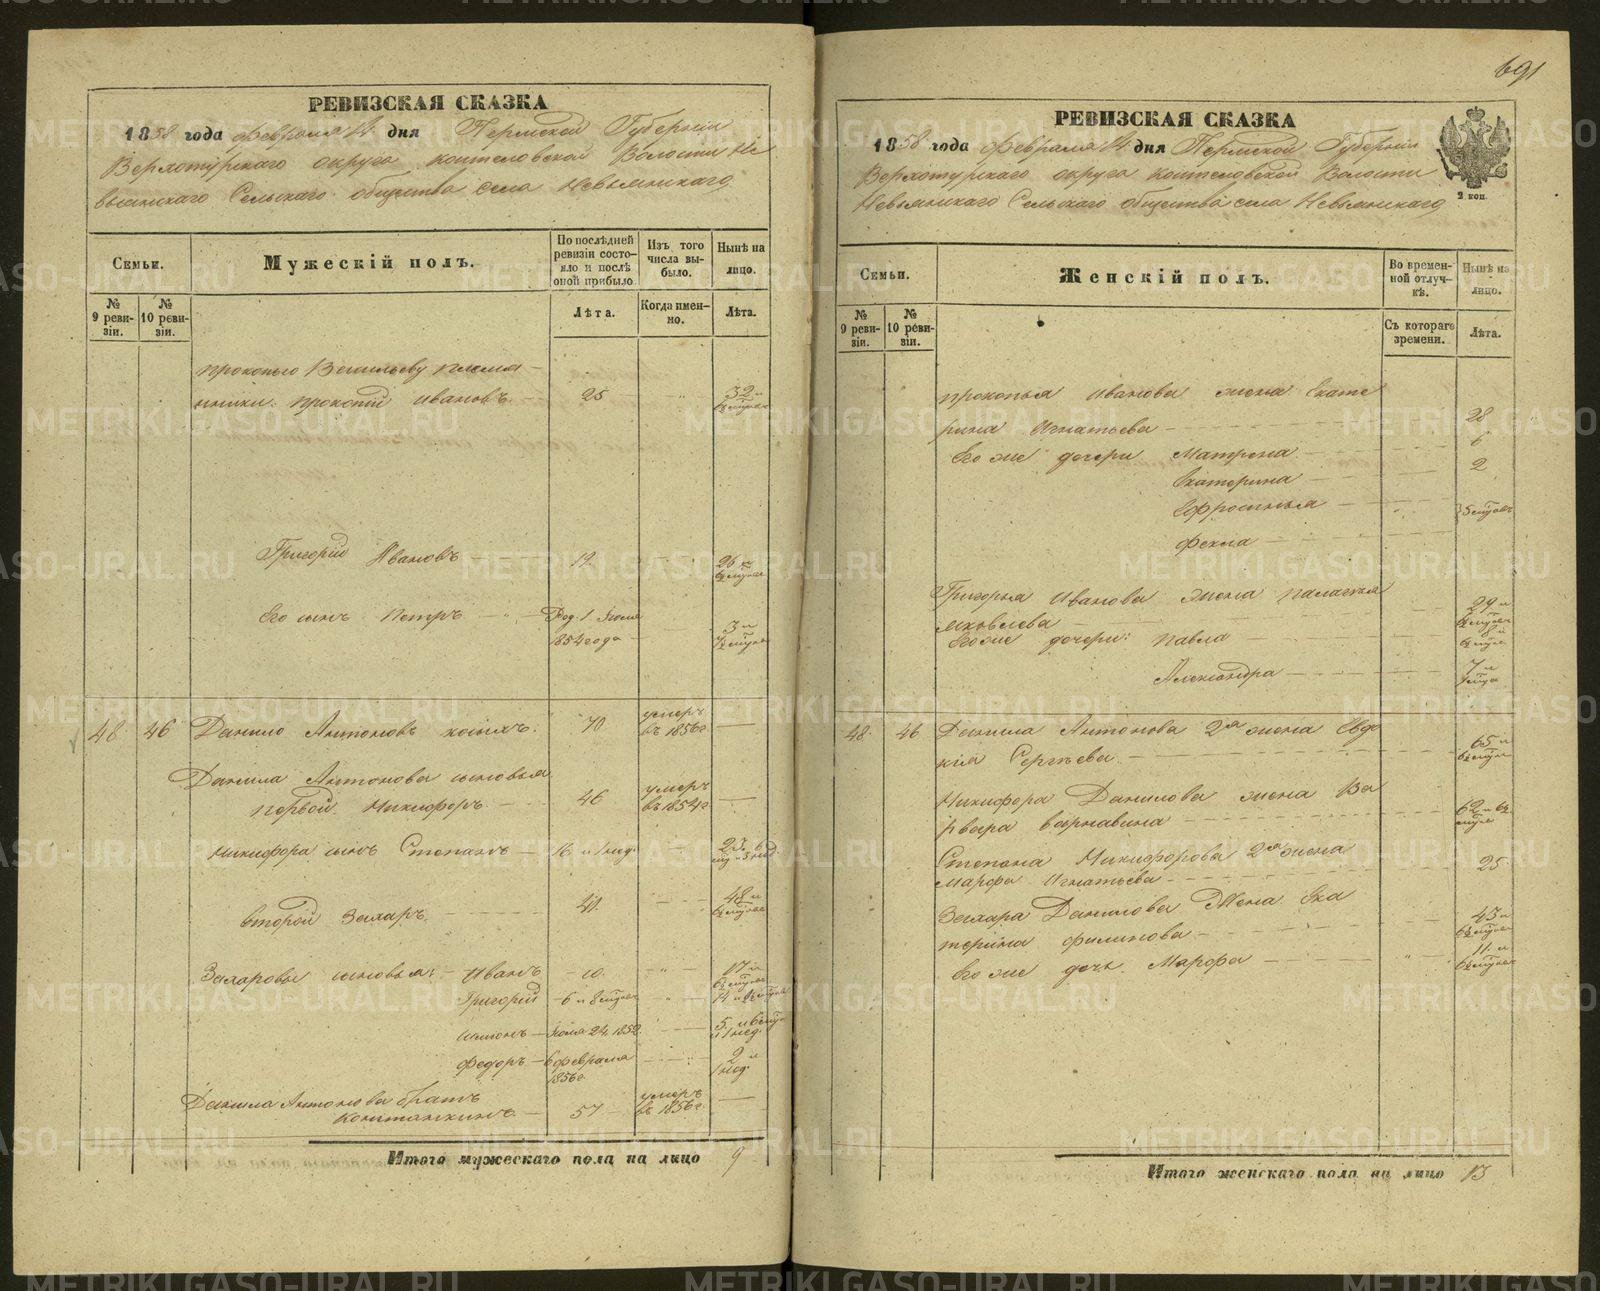 691
РЕВИЗСКАЯ СКАЗКА
1858 года февраля дня Пермской Губернии
Верхотурскаго округа коптеловской Волости Не
вьянскаго Сельскаго общества села Невьянскаго
Семьи.
Мужескій полъ.
По послѣдней ревизіи состояло и послѣ оной прибыло
Изъ того числа выбыло.
Нынѣ на лицо.
№ 9 ревизіи.
№ 10 ревизіи.
Лѣта.
Когда именно.
Лѣта.
прокопью Васильеву племян
ники: прокопій ивановъ 25 32 и
Григорій Ивановъ 19. 26 и
Его сынъ Петръ Род. 1 Июля 3 и
1854 года
48. 46 Данило Антоновъ умеръ
70 въ 1856 г
Данила Антонова сыновья
первой Никифоръ 46 умеръ въ 1854 г
Никифора сынъ Степанъ 16 и 1 нед. 23. 6
второй Захаръ 41. 48 и
Захаровы сыновья: Иванъ 10. 17 и
Григорій 6 и 8 14 и
Июля 24. 1852. 5 и 6
и 1 нед.
Федоръ 6 февраля 2 и
1856 г 1 нед.
Данила Антонова братъ умеръ
Константинъ 57 въ 1856 г
Итого мужескаго пола на лицо 9
РЕВИЗСКАЯ СКАЗКА
1858 года февраля дня Пермской Губерніи
Верхотурскаго округа коптеловской Волости
Невьянскаго Сельскаго общества села Невьянскаго
2 коп.
Семьи.
Женскій полъ.
Во временной отлучкѣ.
Нынѣ на лицо.
№ 9 ревизіи.
№ 10 ревизіи.
Съ котораго времени.
Лѣта.
прокопья Иванова жена Екате
рина Игнатьева 28
Его же дочери Матрена 6
Екатерина 2
Ефросинья
Фекла
Григорья Иванова жена палагѣя
Яковлева 29 и
Его же дочери: павла
Александра 7 и
48. 46 Данила Антонова 2я жена Евдо
кія Сергѣева 65 и
Никифора Данилова жена Ва
рвара варнавина 62 и
Степана Никифорова 2я жена
Марфа Игнатьева 25
Захара Данилова Жена Ека
терина филипова 43 и
Его же дочь Марфа 11. и
Итого женскаго пола на лицо 13
METRIKI.GASO-URAL.RU